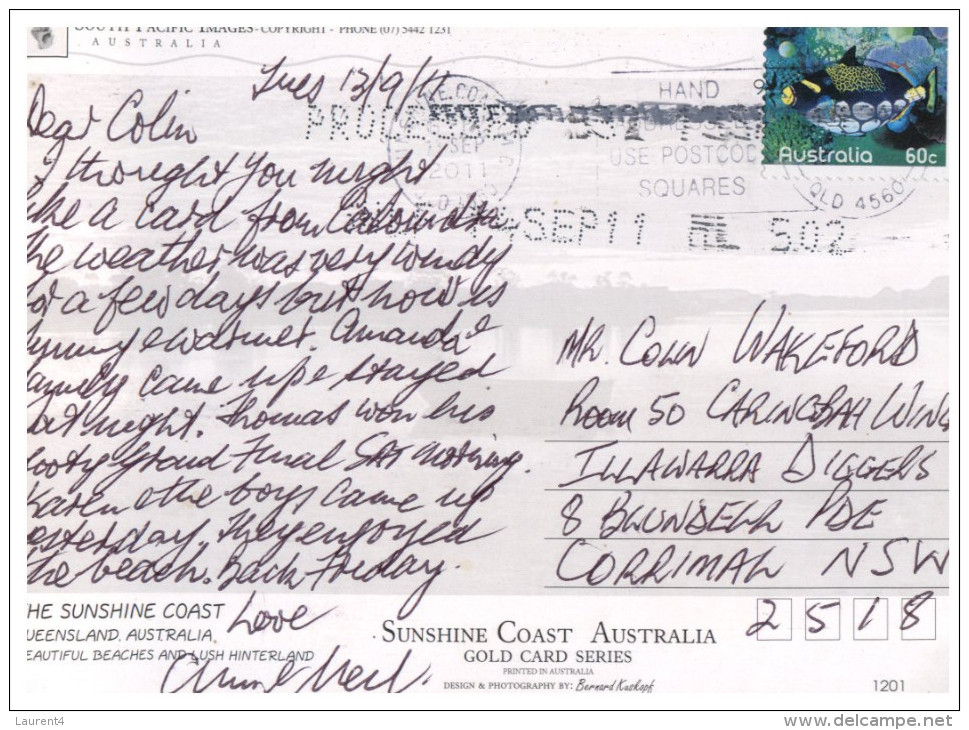 SOUTH PACIFIC IMAGES - COPYRIGHT - PHONE (07) 5442 1231
AUSTRALIA
Tues 13/9/11
Dear Colin
I thought you might
like a card from
the weather, was very windy
for a few days but now is
sunny & warmer. Amanda &
family came up & stayed
Sat night. Thomas won his
footy Grand Final Sat morning.
Karen & the boys came up
yesterday. They enjoyed
the beach. Back Friday.
Love
Anne & Neil.
HAND
USE POSTCODE
SQUARES
SEP
2011
QLD 4560
SEP11 502
Australia 60c
MR. COLIN WAKEFORD
ROOM 50 CARINGBAH WING
ILLAWARRA DIGGERS
8 BLUNDELL PDE
CORRIMAL NSW
2518
THE SUNSHINE COAST
QUEENSLAND, AUSTRALIA,
BEAUTIFUL BEACHES AND LUSH HINTERLAND
SUNSHINE COAST AUSTRALIA
GOLD CARD SERIES
PRINTED IN AUSTRALIA
DESIGN & PHOTOGRAPHY BY: Bernard Kuskopf
1201
Laurent4
www.delcampe.net